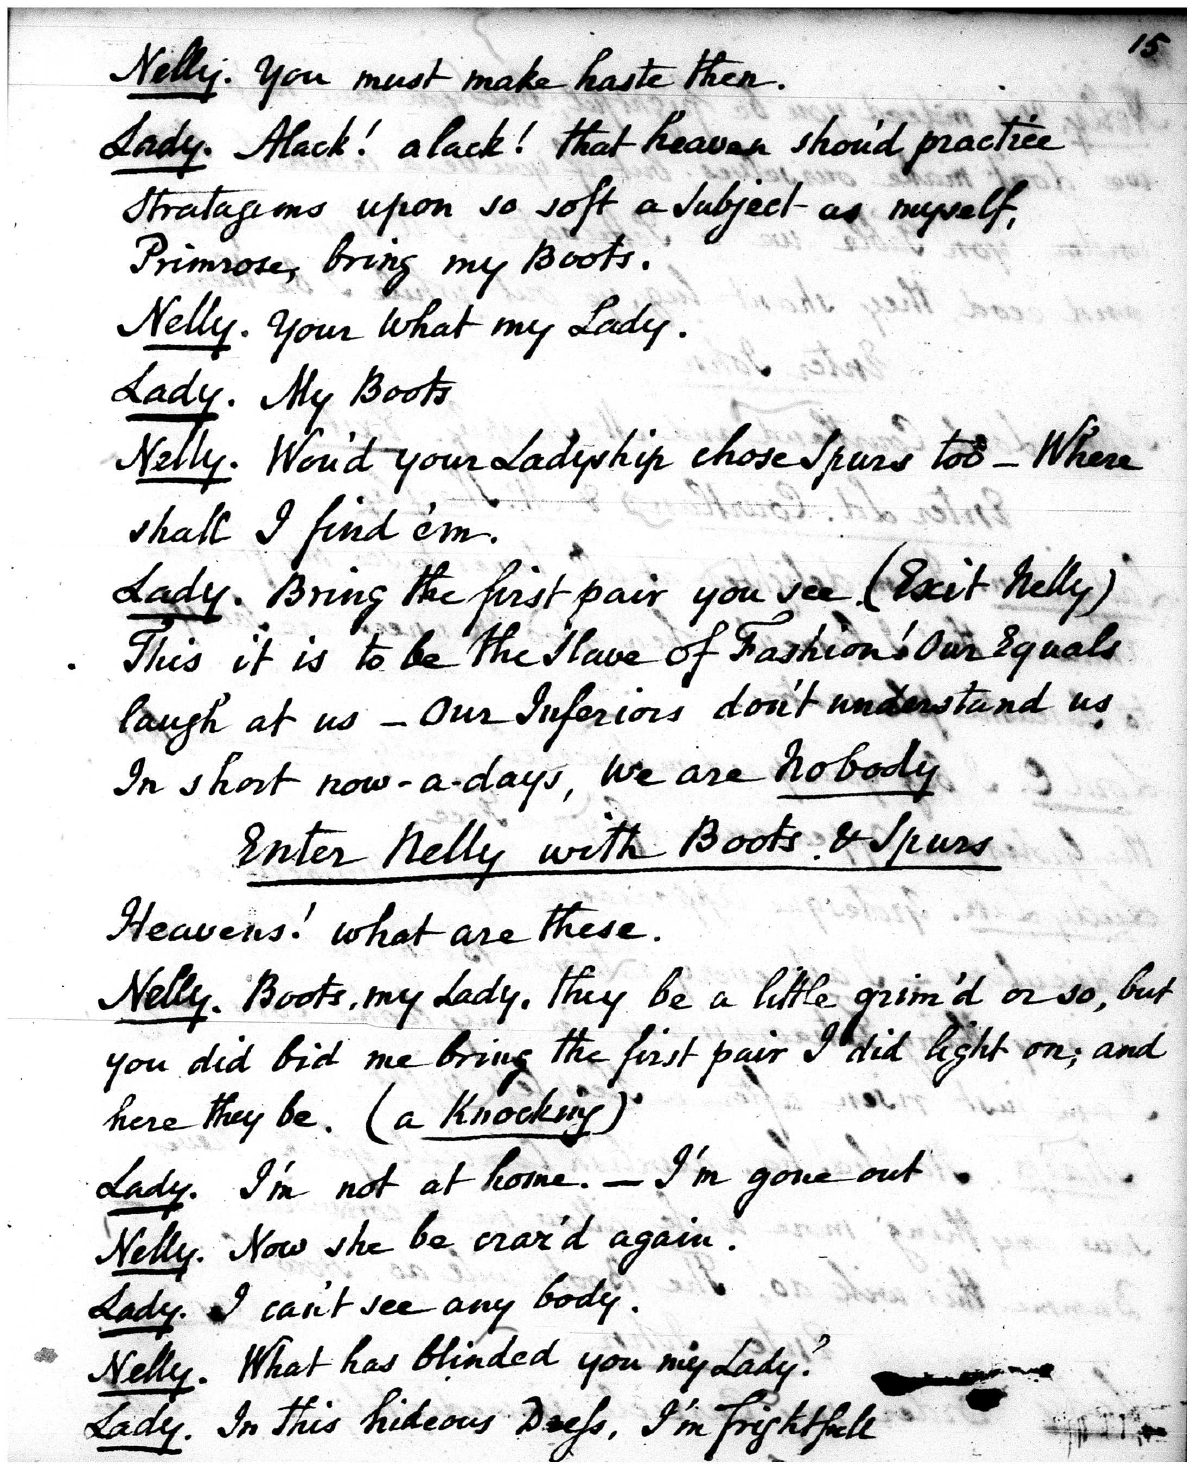 15
Nelly. You must make haste then.
Lady. Alack! alack! that heaven shou'd practice
Stratagems upon so soft a Subject as myself,
Primrose, bring my Boots.
Nelly. Your what my Lady.
Lady. My Boots
Nelly. Wou'd your Ladyship chose Spurs too – Where
shall I find 'em.
Lady. Bring the first pair you see. (Exit Nelly)
This it is to be the Slave of Fashion! Our Equals
laugh at us – Our Inferiors don't understand us
In short now-a-days, we are Nobody
Enter Nelly with Boots & Spurs
Heavens! what are these.
Nelly. Boots, my Lady, they be a little grim'd or so, but
you did bid me bring the first pair I did light on; and
here they be. (a Knocking)
Lady. I'm not at home. – I'm gone out
Nelly. Now she be craz'd again.
Lady. I can't see any body.
Nelly. What has blinded you my Lady?
Lady. In this hideous Dress, I'm frightfull